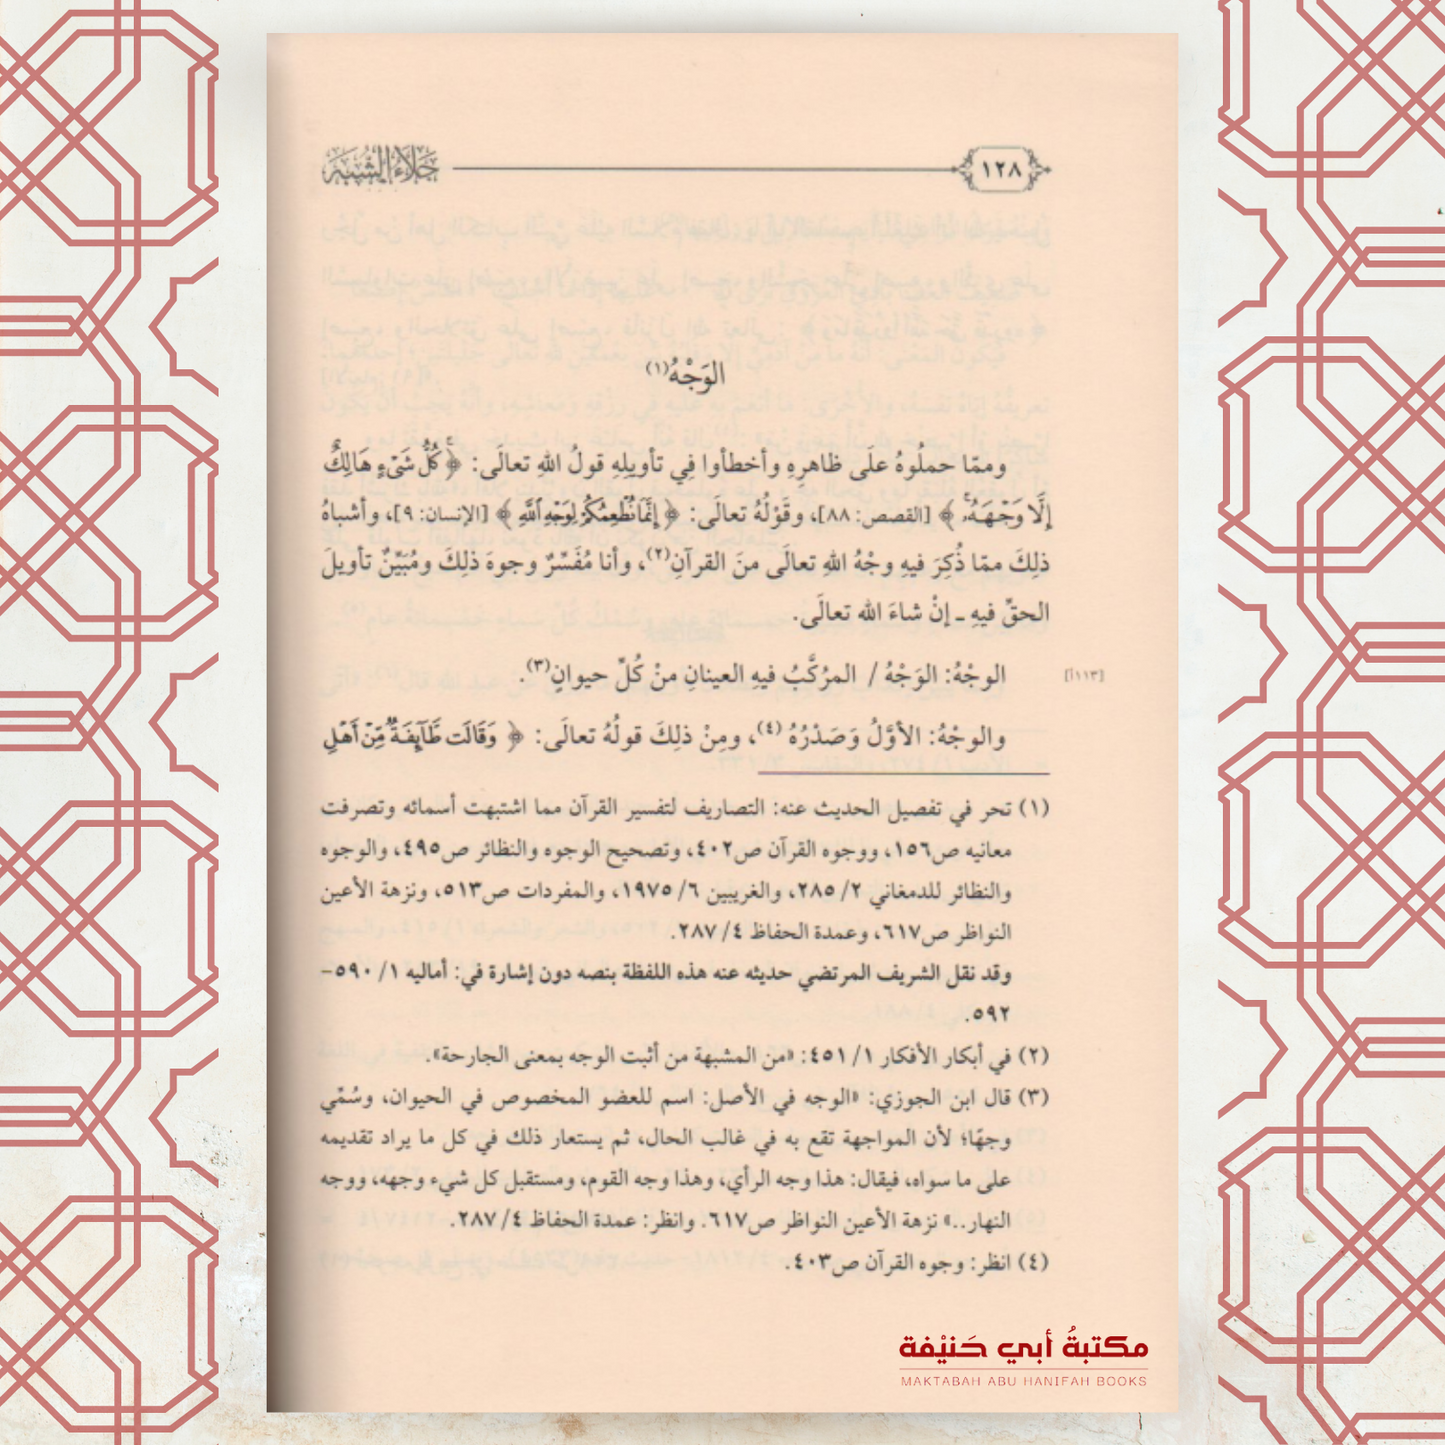 ١٢٨
جَلَاءُ الشُّبَهِ
الوَجْهُ(١)
وممّا حملُوهُ علَى ظاهرِهِ وأخطأوا فِي تأويلِهِ قولُ اللهِ تعالَى: ﴿كُلُّ شَىْءٍ هَالِكٌ
إِلَّا وَجْهَهُۥ﴾ [القصص: ٨٨]، وقَوْلُهُ تعالَى: ﴿إِنَّمَا نُطْعِمُكُمْ لِوَجْهِ ٱللَّهِ﴾ [الإنسان: ٩]، وأشباهُ
ذلِكَ ممّا ذُكِرَ فيهِ وجْهُ اللهِ تعالَى منَ القرآنِ(٢)، وأنا مُفَسِّرٌ وجوهَ ذلِكَ ومُبَيِّنٌ تأويلَ
الحقِّ فيهِ ـ إنْ شاءَ الله تعالَى.
[١١٣أ]
الوجْهُ: الوَجْهُ / المرُكَّبُ فيهِ العينانِ منْ كُلِّ حيوانٍ(٣).
والوجْهُ: الأوَّلُ وَصَدْرُهُ (٤)، ومِنْ ذلِكَ قولُهُ تعالَى: ﴿وَقَالَت طَّآئِفَةٌ مِّنْ أَهْلِ
(١) تحر في تفصيل الحديث عنه: التصاريف لتفسير القرآن مما اشتبهت أسمائه وتصرفت
معانيه ص١٥٦، ووجوه القرآن ص٤٠٢، وتصحيح الوجوه والنظائر ص٤٩٥، والوجوه
والنظائر للدمغاني ٢/ ٢٨٥، والغريبين ٦/ ١٩٧٥، والمفردات ص٥١٣، ونزهة الأعين
النواظر ص٦١٧، وعمدة الحفاظ ٤/ ٢٨٧.
وقد نقل الشريف المرتضي حديثه عنه هذه اللفظة بنصه دون إشارة في: أماليه ١/ ٥٩٠-
٥٩٢.
(٢) في أبكار الأفكار ١/ ٤٥١: «من المشبهة من أثبت الوجه بمعنى الجارحة».
(٣) قال ابن الجوزي: «الوجه في الأصل: اسم للعضو المخصوص في الحيوان، وسُمِّي
وجهًا؛ لأن المواجهة تقع به في غالب الحال، ثم يستعار ذلك في كل ما يراد تقديمه
على ما سواه، فيقال: هذا وجه الرأي، وهذا وجه القوم، ومستقبل كل شيء وجهه، ووجه
النهار..» نزهة الأعين النواظر ص٦١٧. وانظر: عمدة الحفاظ ٤/ ٢٨٧.
(٤) انظر: وجوه القرآن ص٤٠٣.
مكتبةُ أبي حَنيْفة
MAKTABAH ABU HANIFAH BOOKS